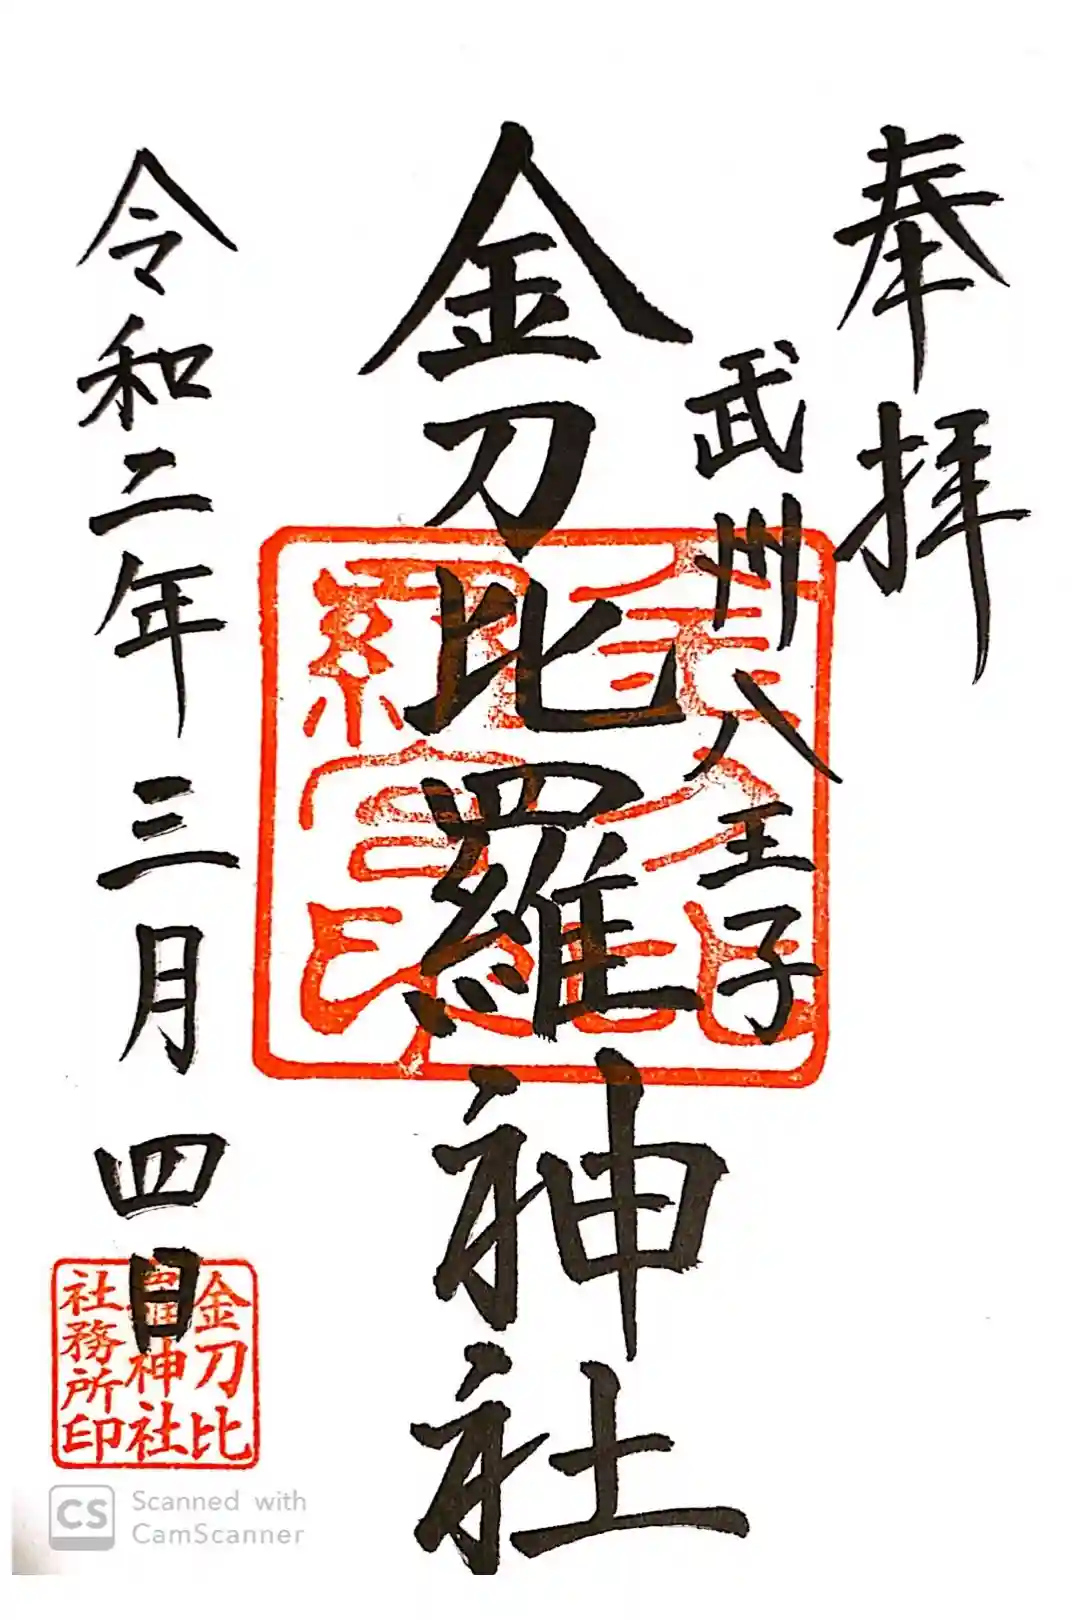 奉拝
武州八王子
金刀比羅神社
令和二年三月四日
金刀比
羅神社
社務所印
CS Scanned with
CamScanner